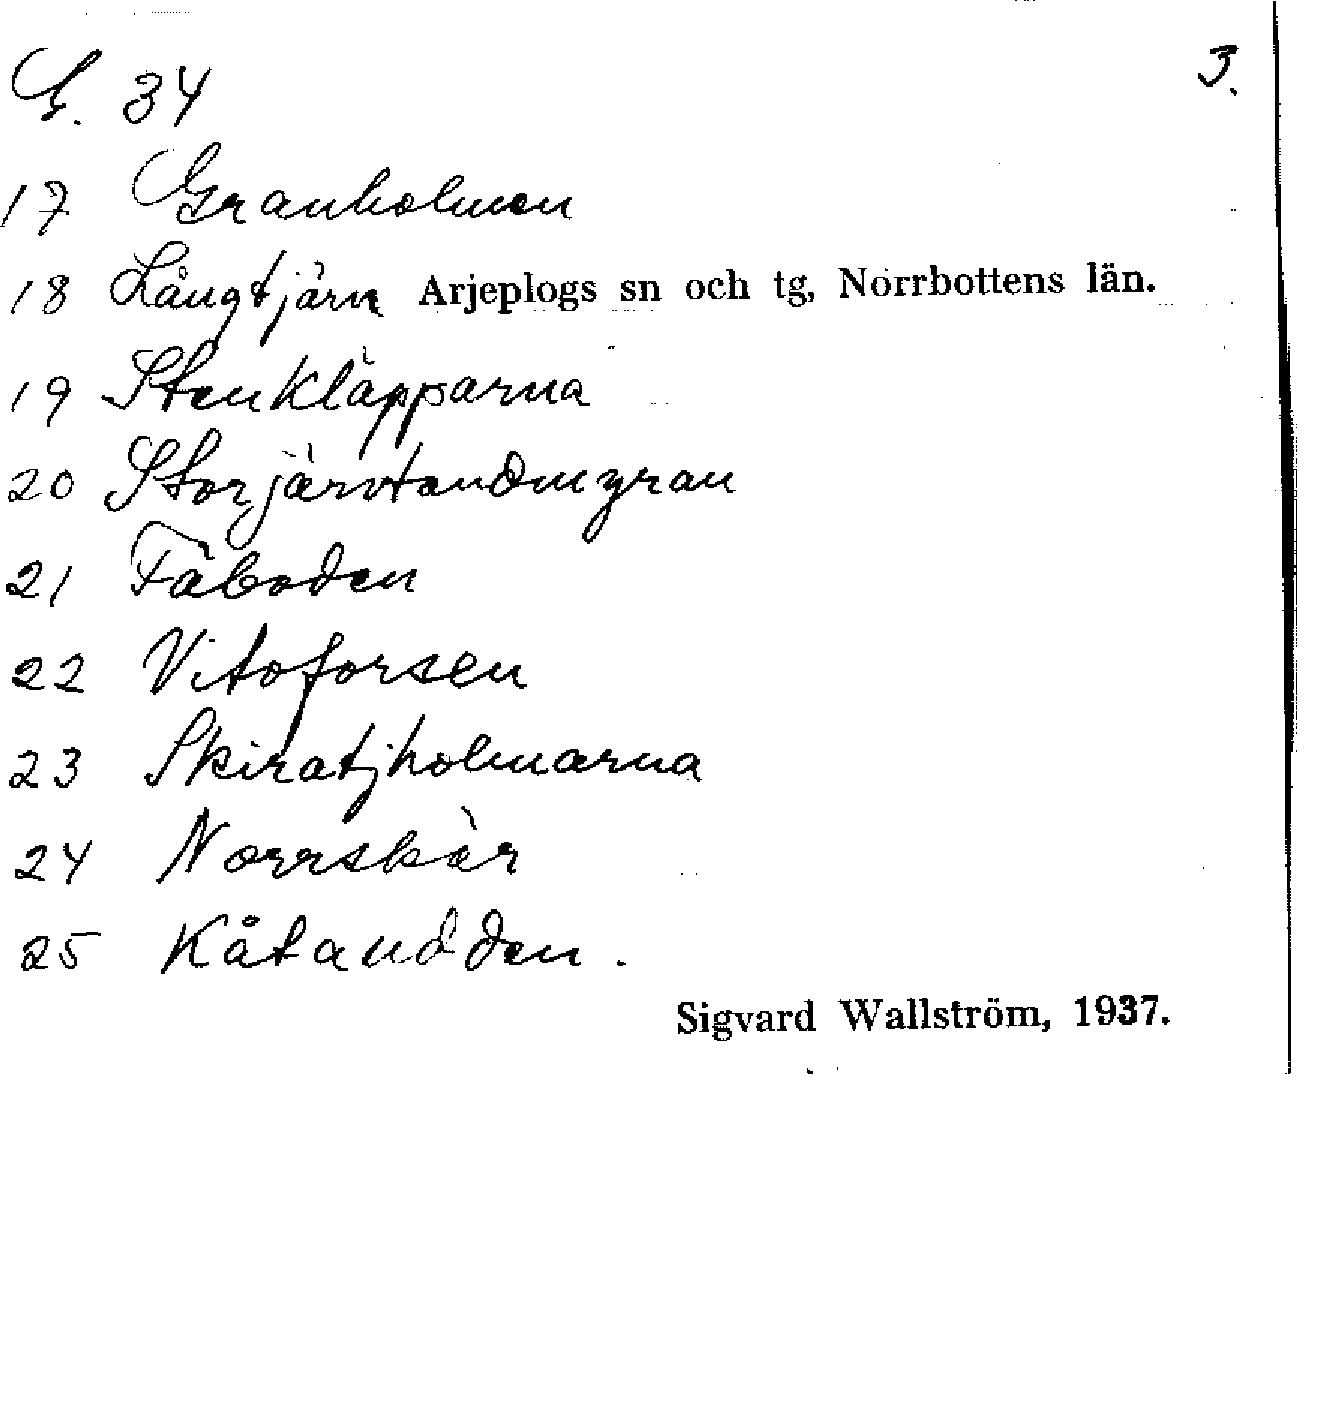 S. 34 3.
17 Granholmen
18 Långtjärn Arjeplogs sn och tg, Norrbottens län.
19 Stenkläpparna
20 Storjärvtandmyran
21 Fäboden
22 Vitoforsen
23 Skiratjholmarna
24 Norrskär
25 Kåtaudden.
Sigvard Wallström, 1937.